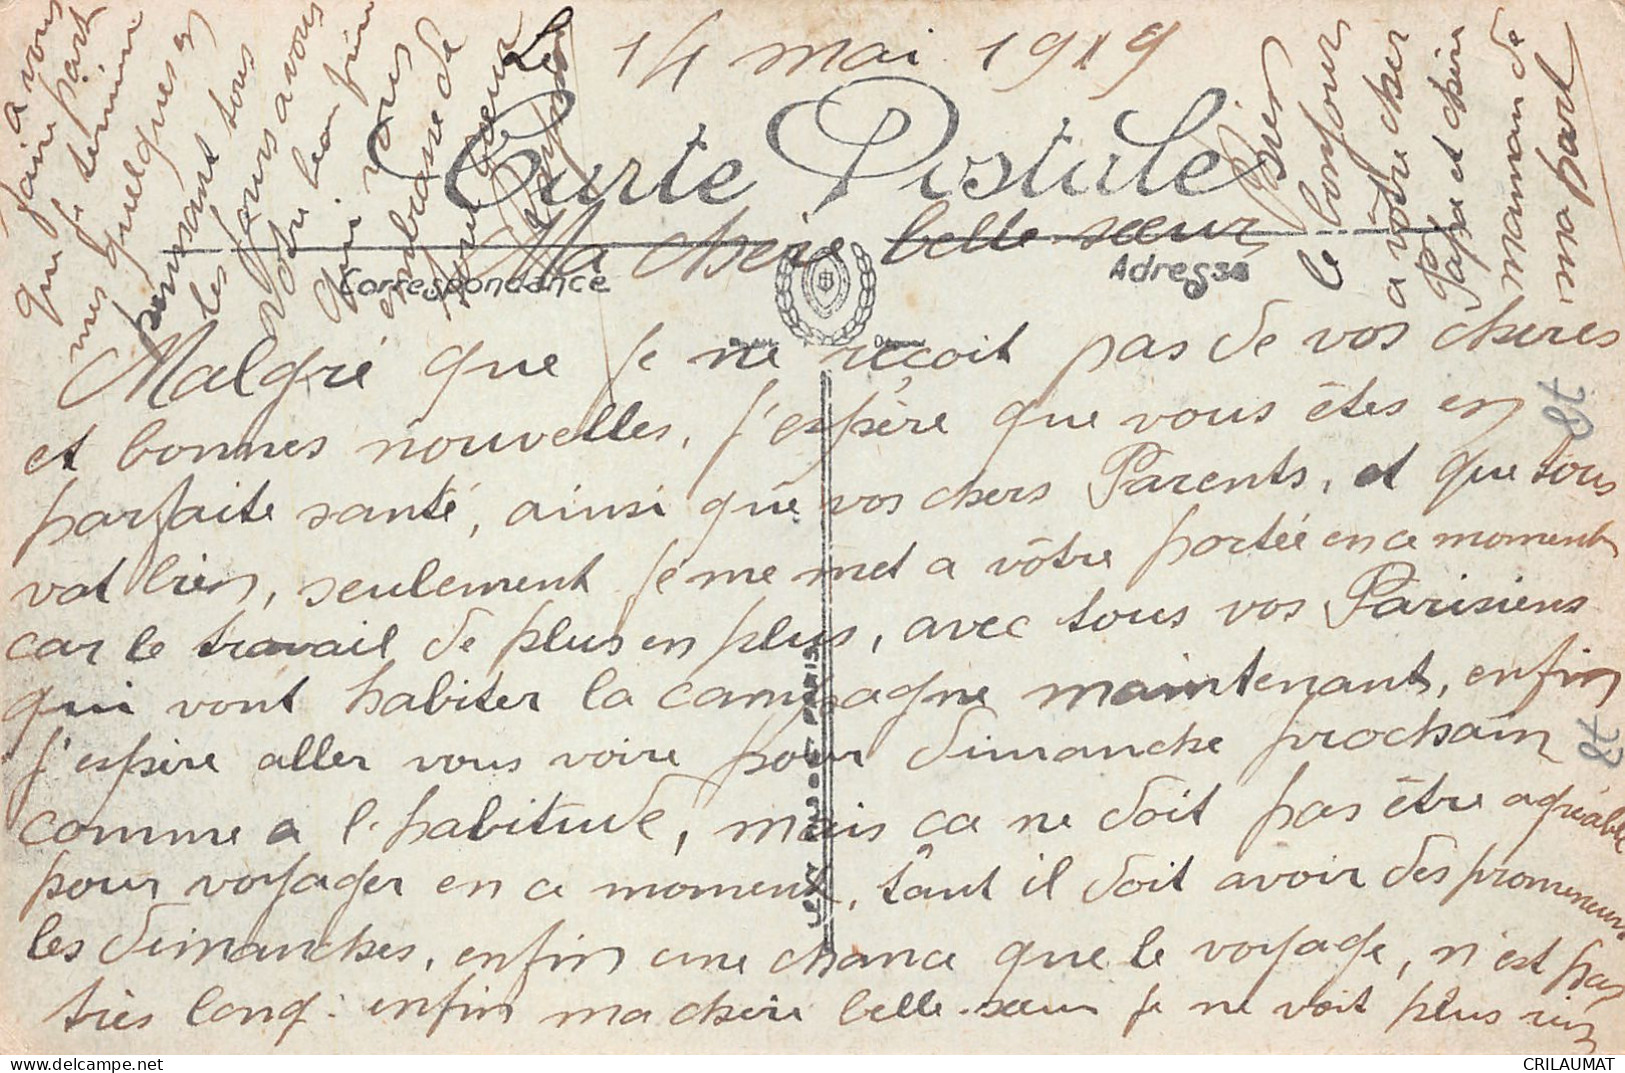 Le 14 mai 1919
Carte Postale
Correspondance
Adresse
Ma chère belle-sœur
Malgré que je ne reçoit pas de vos chères
et bonnes nouvelles, j'espère que vous êtes en
parfaite santé, ainsi que vos chers Parents, et que tous
vat bien, seulement je me met a vôtre portée en ce moment
car le travail de plus en plus, avec tous vos Parisiens
qui vont habiter la campagne maintenant, enfin
j'espère aller vous voire pour dimanche prochain
comme a l'habitude, mais ça ne doit pas être agréable
pour voyager en ce moment, tant il doit avoir des promeneurs
les dimanches, enfin une chance que le voyage, n'est pas
très long: enfin ma chère belle-sœur je ne voit plus rien
a vous
faire part
qui je termine
mes quelques en
pensant tous
les jours a vous
Votre beau frère
qui vous
embrasse de
tout cœur
Bien
le bonjour
a vôtre cher
Papa et chère
maman de
ma part
CRILAUMAT